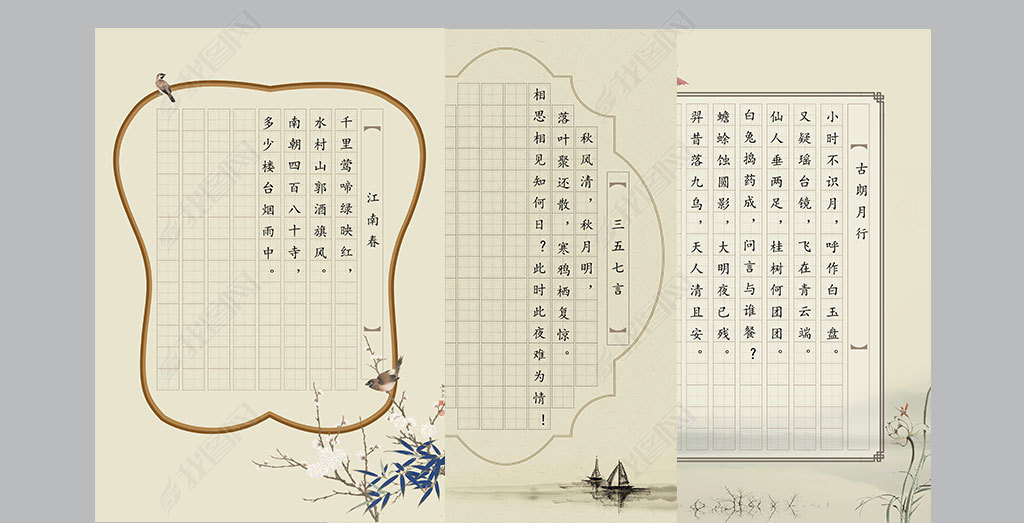 【江南春】
千里莺啼绿映红，
水村山郭酒旗风。
南朝四百八十寺，
多少楼台烟雨中。
【三五七言】
秋风清，秋月明，
落叶聚还散，寒鸦栖复惊。
相思相见知何日？此时此夜难为情！
【古朗月行】
小时不识月，呼作白玉盘。
又疑瑶台镜，飞在青云端。
仙人垂两足，桂树何团团。
白兔捣药成，问言与谁餐？
蟾蜍蚀圆影，大明夜已残。
羿昔落九乌，天人清且安。